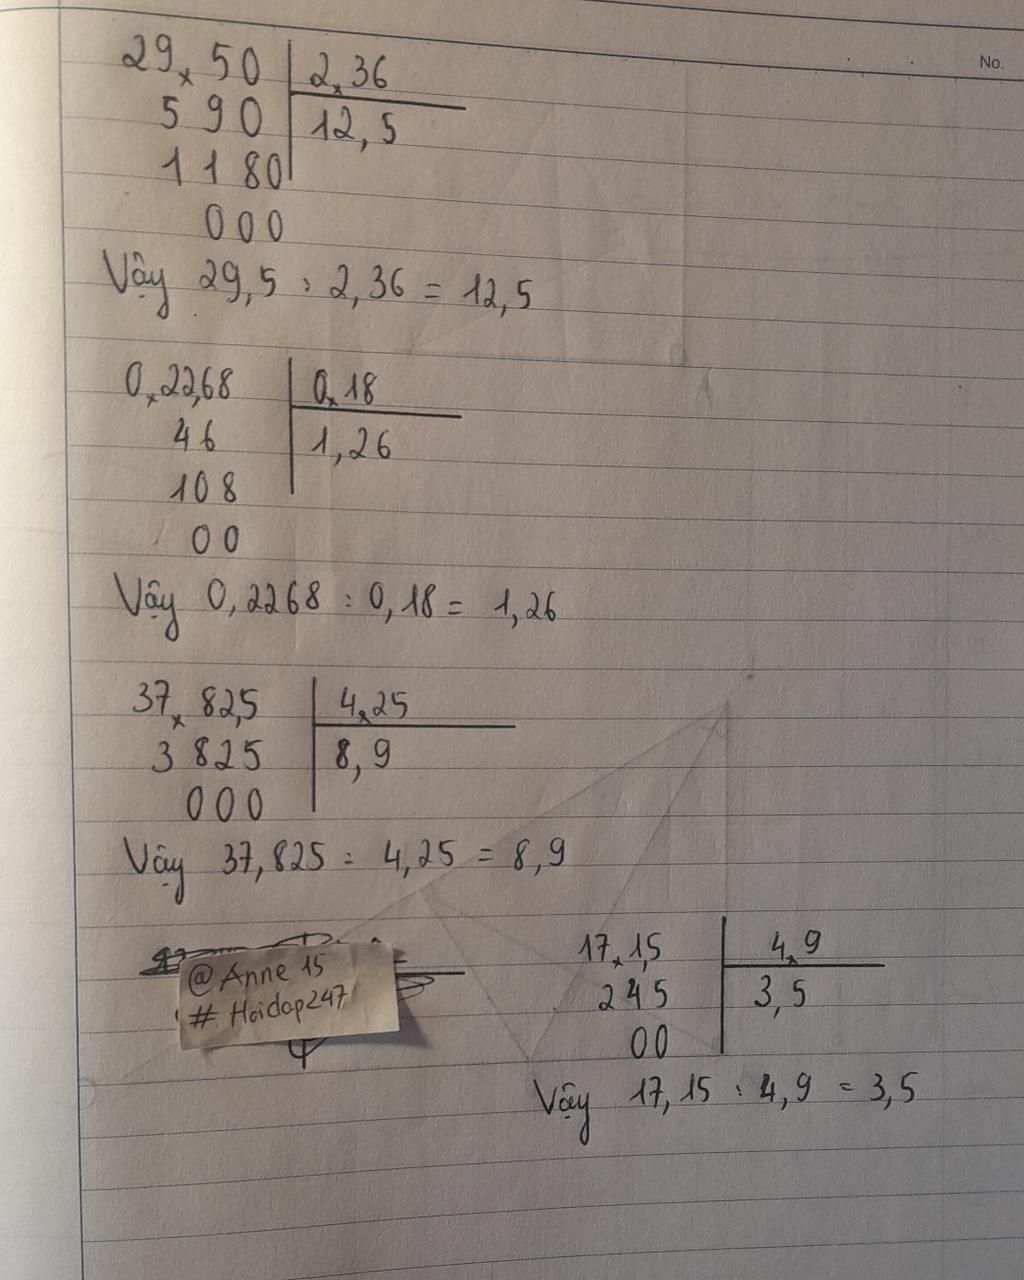 No.
29,50 2,36
590 12,5
1180
000
Vậy 29,5 : 2,36 = 12,5
0,22,68 0,18
46 1,26
108
00
Vậy 0,2268 : 0,18 = 1,26
37,82,5 4,25
3825 8,9
000
Vậy 37,825 : 4,25 = 8,9
@Anne 15
# Hoidap247
17,1,5 4,9
245 3,5
00
Vậy 17,15 : 4,9 = 3,5